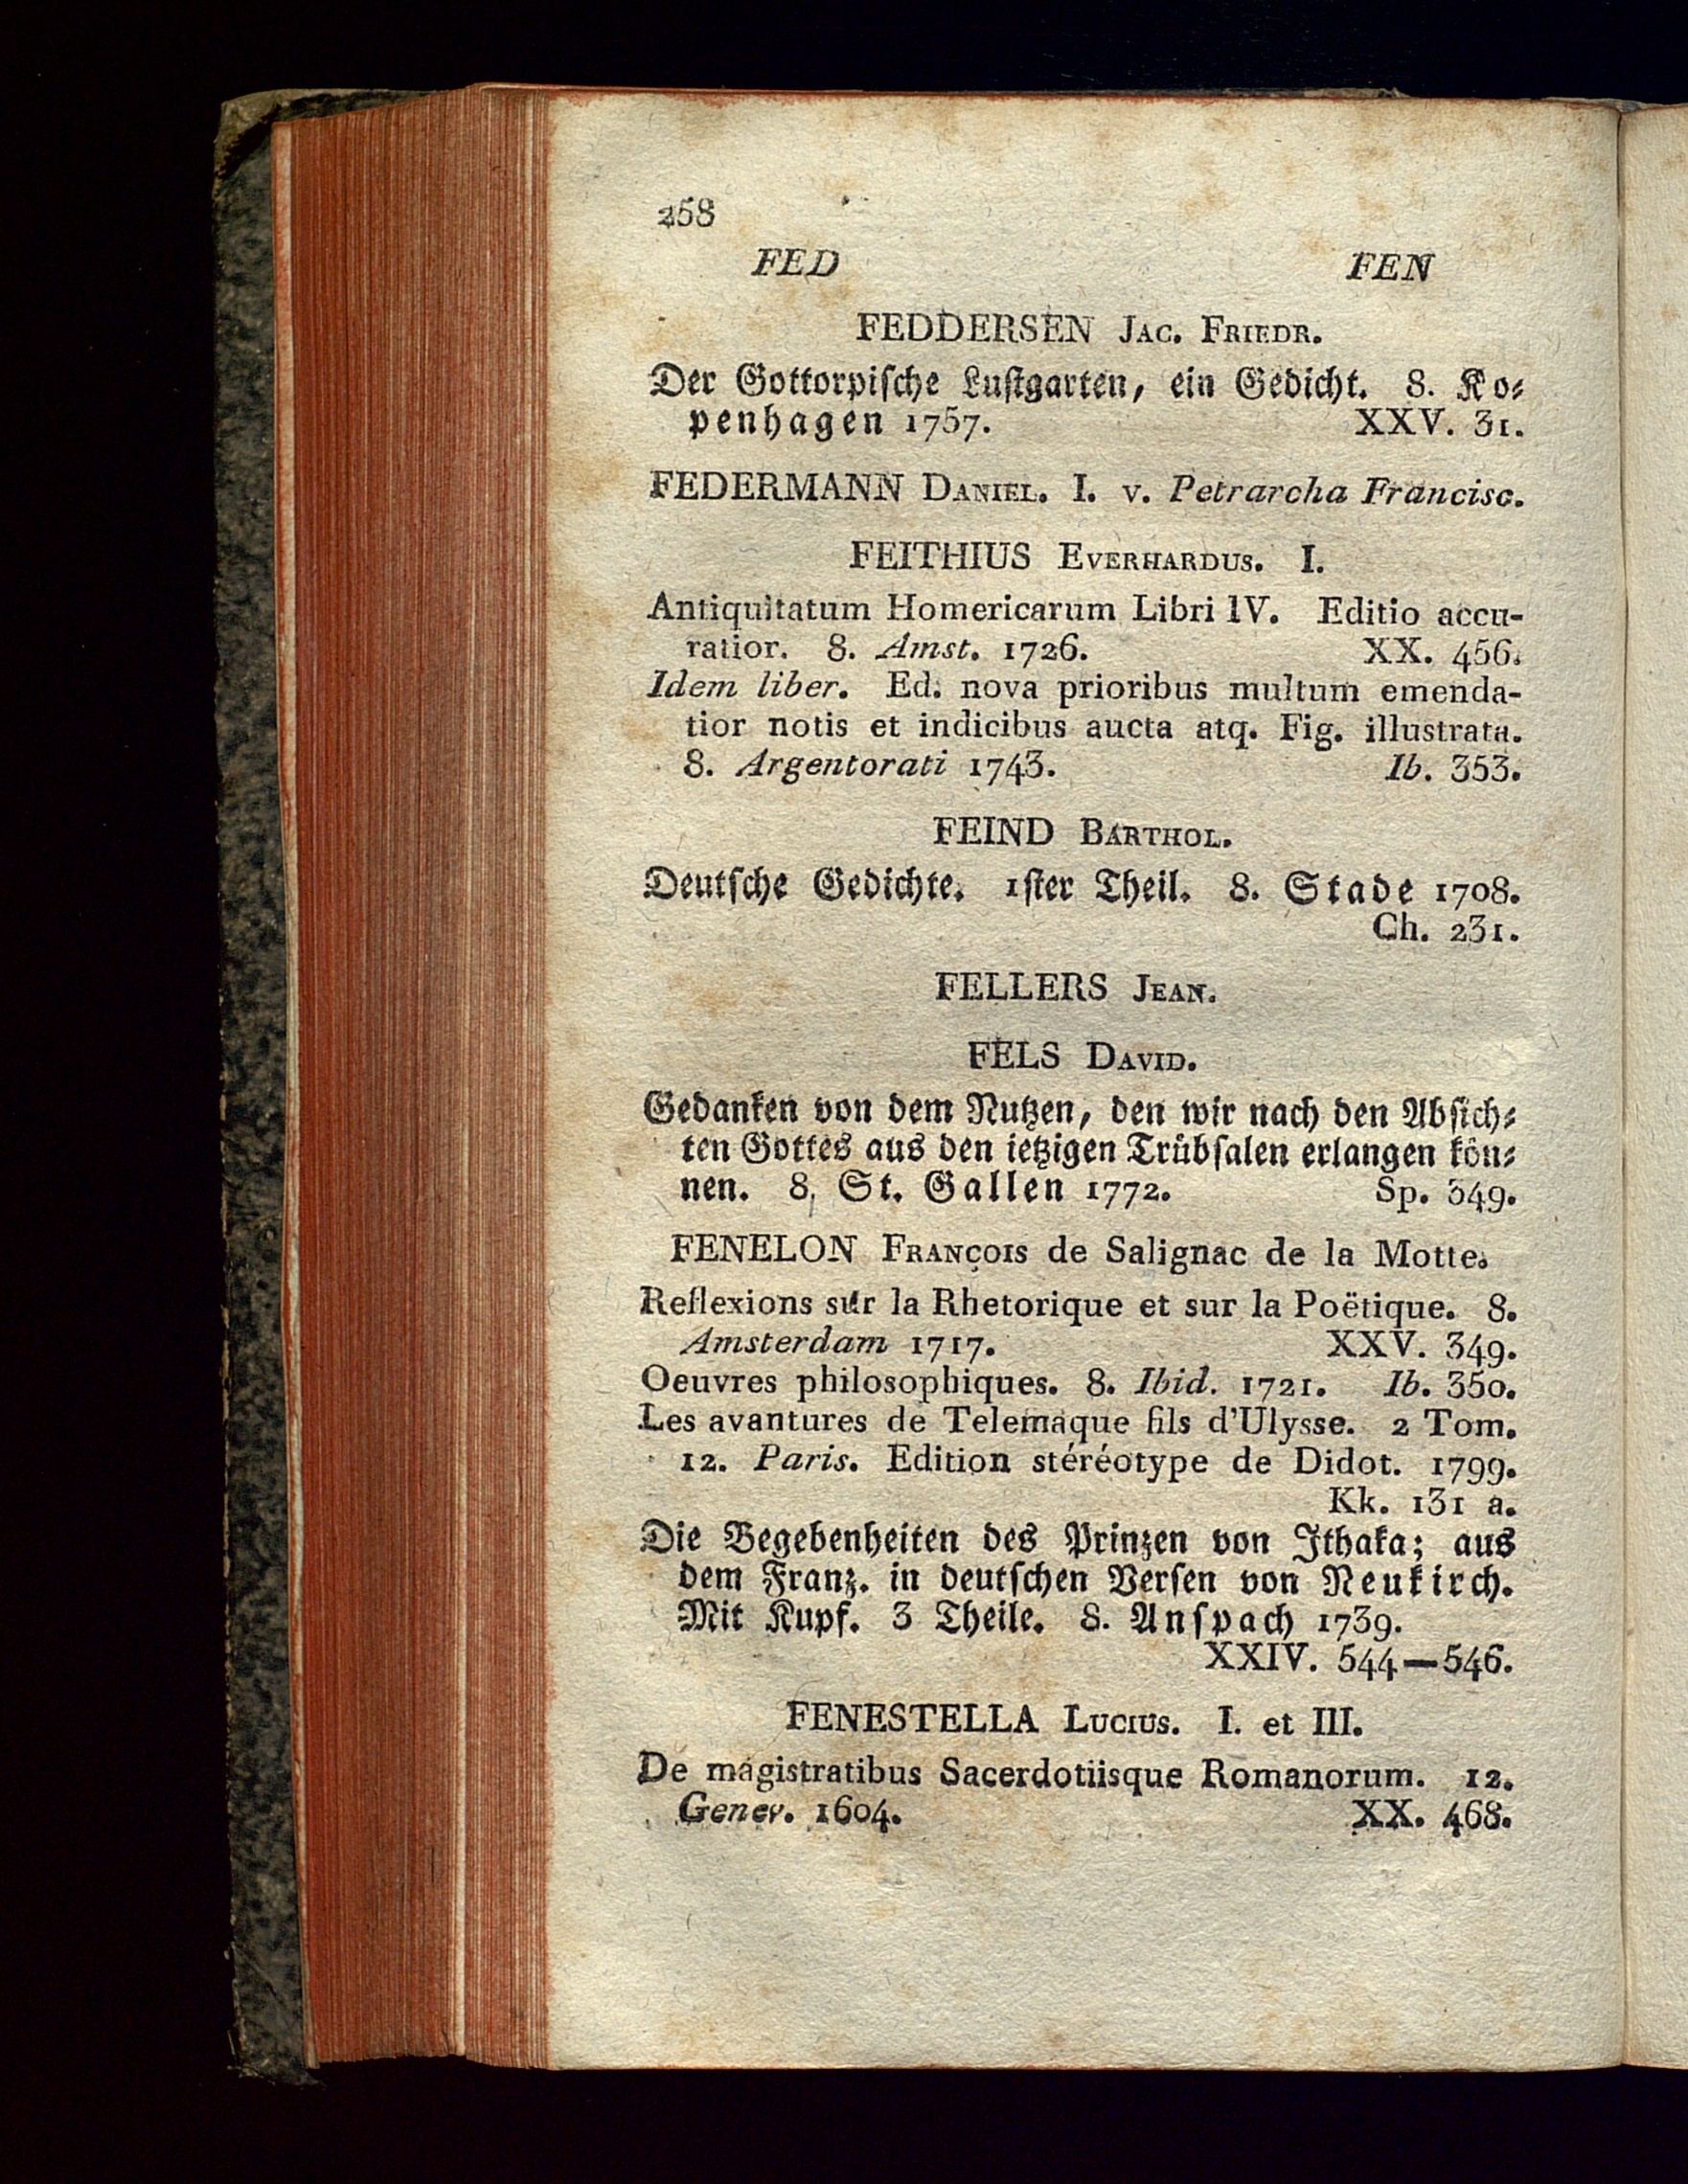 258
FED FEN
FEDDERSEN Jac. Friedr.
Der Gottorpische Lustgarten, ein Gedicht. 8. Ko-
penhagen 1757. XXV. 31.
FEDERMANN Daniel. I. v. Petrarcha Francisc.
FEITHIUS Everhardus. I.
Antiquitatum Homericarum Libri IV. Editio accu-
ratior. 8. Amst. 1726. XX. 456.
Idem liber. Ed. nova prioribus multum emenda-
tior notis et indicibus aucta atq. Fig. illustrata.
8. Argentorati 1743. Ib. 353.
FEIND Barthol.
Deutsche Gedichte. 1ster Theil. 8. Stade 1708.
Ch. 231.
FELLERS Jean.
FELS David.
Gedanken von dem Nutzen, den wir nach den Absich-
ten Gottes aus den ietzigen Trübsalen erlangen kön-
nen. 8, St. Gallen 1772. Sp. 349.
FENELON François de Salignac de la Motte.
Reflexions sur la Rhetorique et sur la Poëtique. 8.
Amsterdam 1717. XXV. 349.
Oeuvres philosophiques. 8. Ibid. 1721. Ib. 350.
Les avantures de Telemaque fils d'Ulysse. 2 Tom.
12. Paris. Edition stéréotype de Didot. 1799.
Kk. 131 a.
Die Begebenheiten des Prinzen von Ithaka; aus
dem Franz. in deutschen Versen von Neukirch.
Mit Kupf. 3 Theile. 8. Anspach 1739.
XXIV. 544—546.
FENESTELLA Lucius. I. et III.
De magistratibus Sacerdotiisque Romanorum. 12.
Genev. 1604. XX. 468.